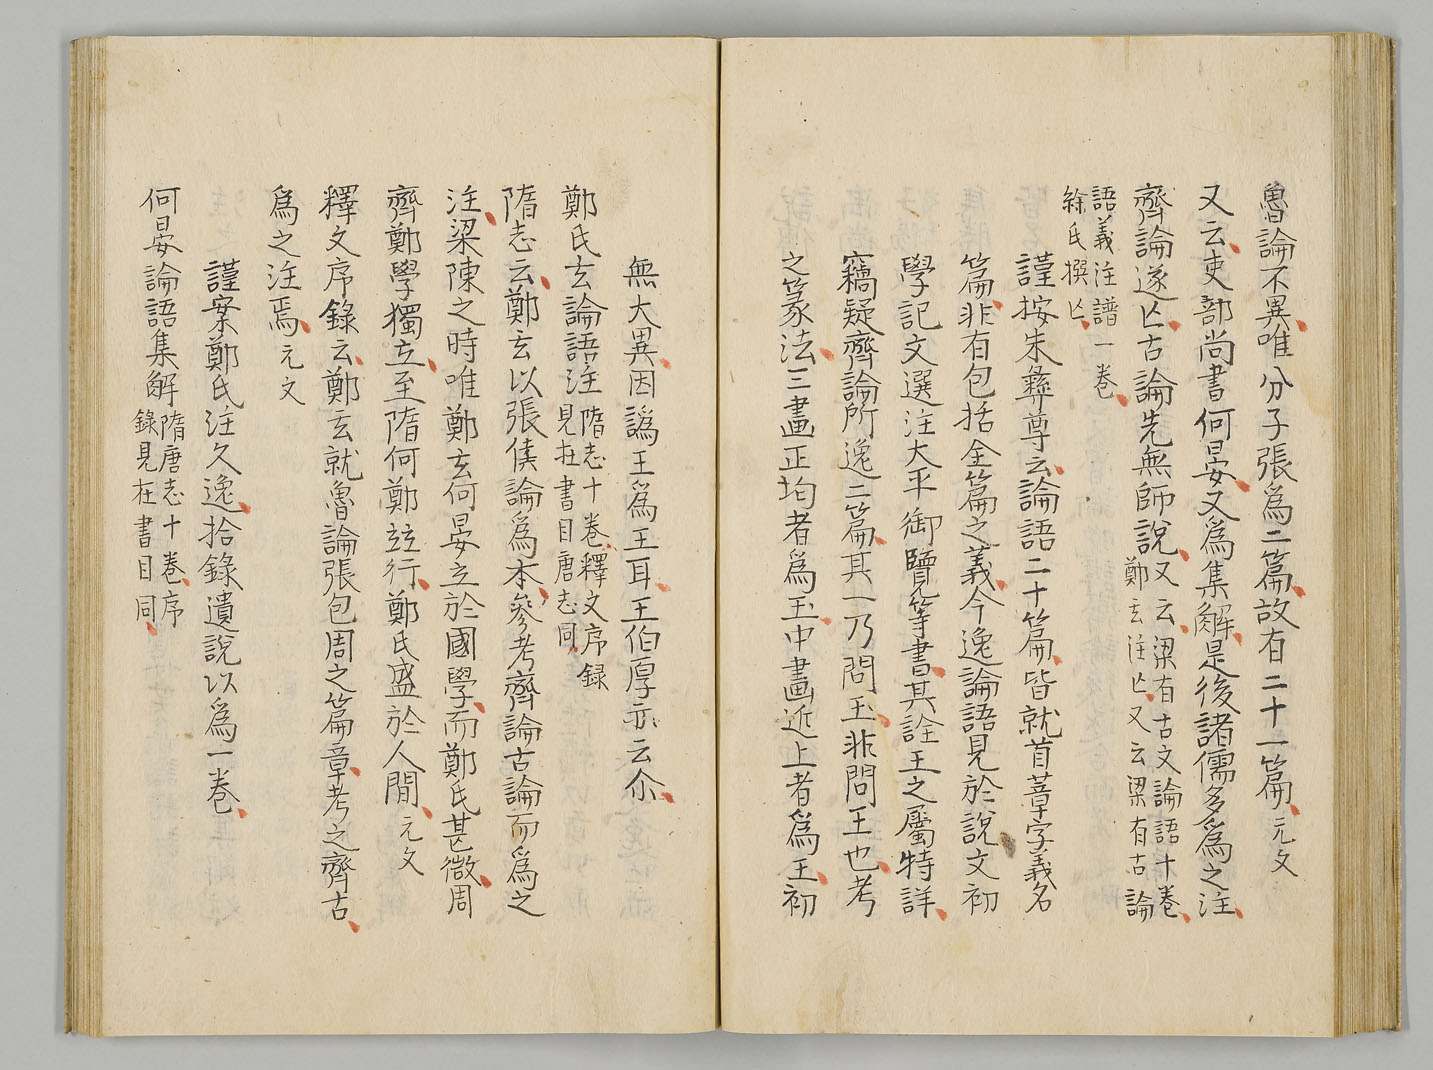 魯論不異唯分子張為二篇故有二十一篇元文
又云吏部尚書何晏又為集解是後諸儒多為之注
齊論遂亡古論先無師說又云梁有古文論語十卷
鄭玄注亡又云梁有古論
語義注譜一卷
徐氏撰亡
謹按朱彝尊云論語二十篇皆就首章字義名
篇非有包括全篇之義今逸論語見於說文初
學記文選注大平御覽等書其詮王之屬特詳
竊疑齊論所逸二篇其一乃問玉非問王也考
之篆法三畫正均者為玉中畫近上者為王初
無大異因譌玉為王耳王伯厚亦云尒
鄭氏玄論語注隋志十卷釋文序録
見在書目唐志同
隋志云鄭玄以張侯論為本參考齊論古論而為之
注梁陳之時唯鄭玄何晏立於國學而鄭氏甚微周
齊鄭學獨立至隋何鄭竝行鄭氏盛於人間元文
釋文序錄云鄭玄就魯論張包周之篇章考之齊古
為之注焉元文
謹案鄭氏注久逸拾錄遺說以為一卷
何晏論語集解隋唐志十卷序
錄見在書目同